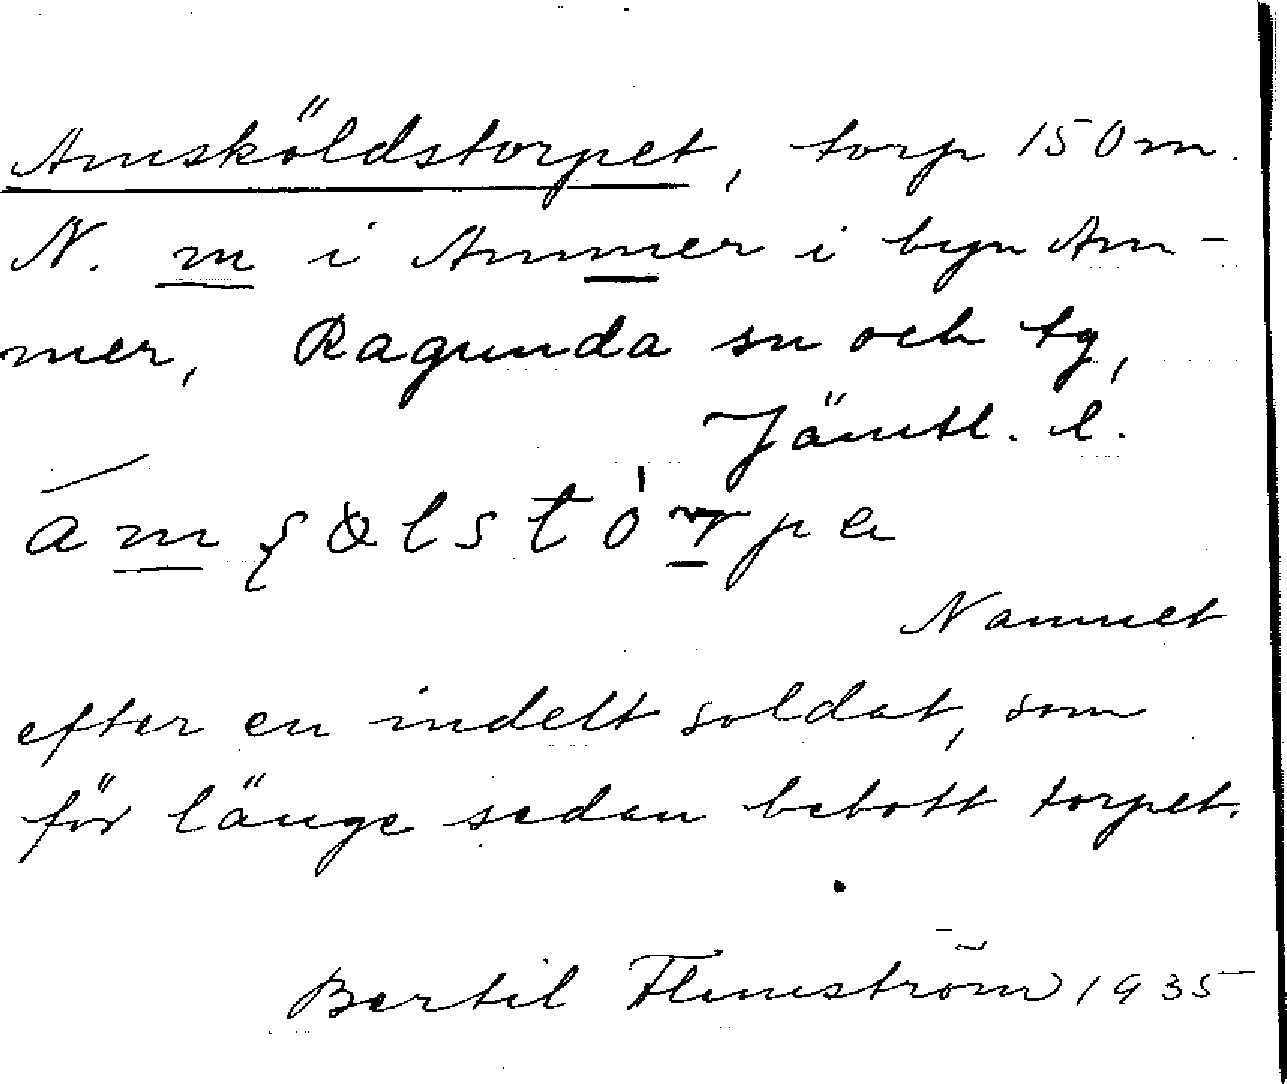 Amsköldstorpet, torp 150 m.
N. m i Ammer i byn Am-
mer, Ragunda sn och tg,
Jämtl. l.
Namnet
efter en indelt soldat, som
för länge sedan bebott torpet.
Bertil Flemström 1935